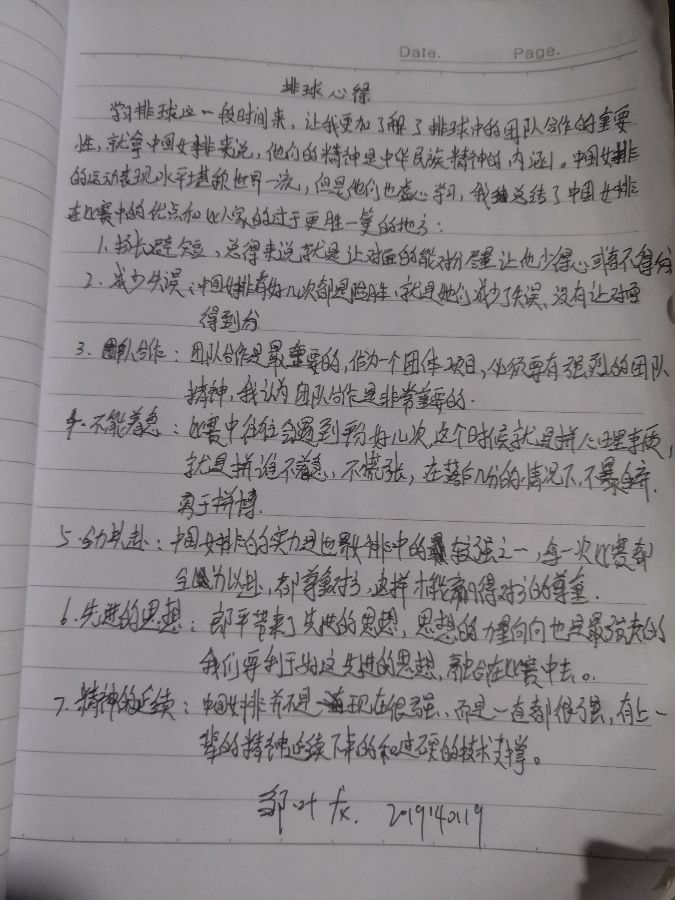 Date. Page.
排球心得
学习排球这一段时间来，让我更加了解了排球中的团队合作的重要
性，就拿中国女排来说，他们的精神是中华民族精神的内涵。中国女排
的运动表现水平堪称世界一流，但是他们也虚心学习，我总结了中国女排
在比赛中的优点和比人家的过于更胜一筹的地方：
1. 扬长避短，总得来说就是让对面的能对分尽量让他少得心或者不得分
2. 减少失误：中国女排有好几次都是险胜，就是她们减少了失误，没有让对面
得到分
3. 团队合作：团队合作是最重要的，作为一个团体项目，必须要有强烈的团队
精神，我认为团队合作是非常重要的.
4. 不能着急：比赛中往往会遇到好几次，这个时候就是拼心理素质，
就是拼谁不着急，不慌张，在落后几分的情况下，不放弃.
勇于拼搏.
5. 全力以赴：中国女排的实力是世界女排中的较强之一，每一次比赛都
全力以赴，都尊重对方，这样才能赢得对方的尊重.
6. 先进的思想：郎平带来了先进的思想，思想的力量向向也是最强大的
我们要利于好这先进的思想，融合在比赛中去。
7. 精神的延续：中国女排并不是现在很强，而是一直都很强，有上一
辈的精神延续下来的和过硬的技术支撑。
邹叶 201940119